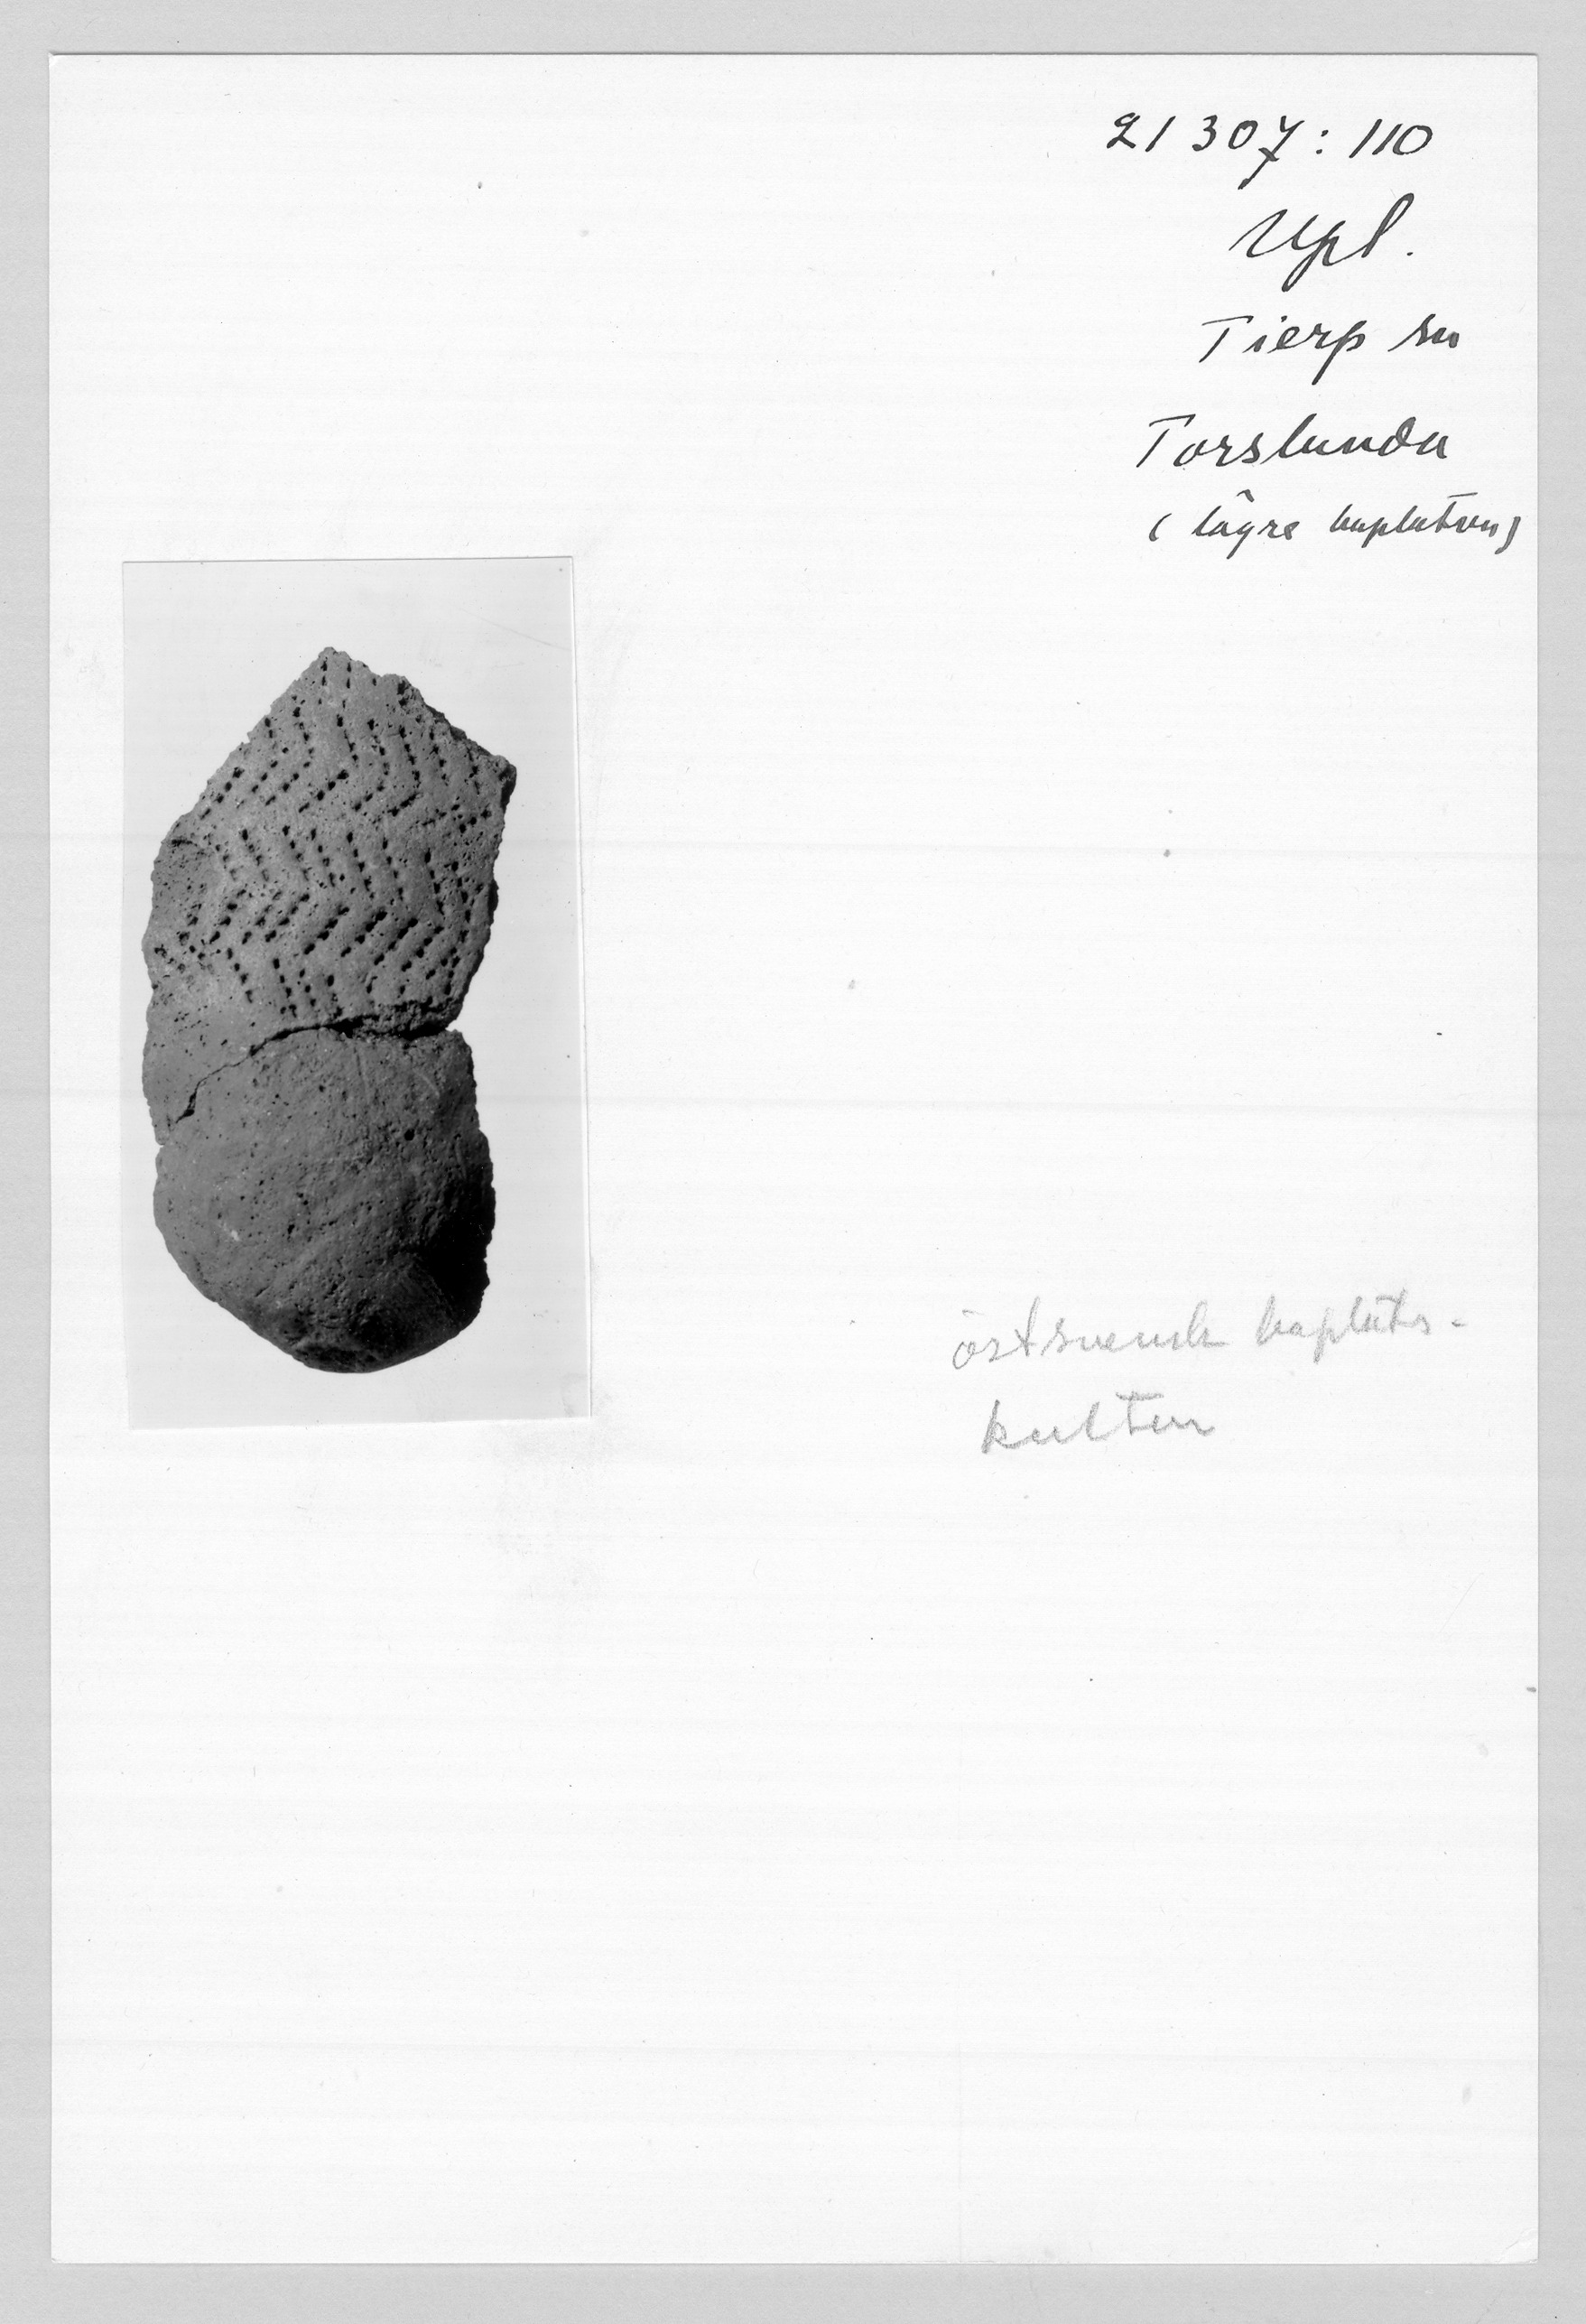 21 307:110
Upl.
Tierp sn
Torslunda
(lägre boplatsen)
östsvensk boplats-
kultur